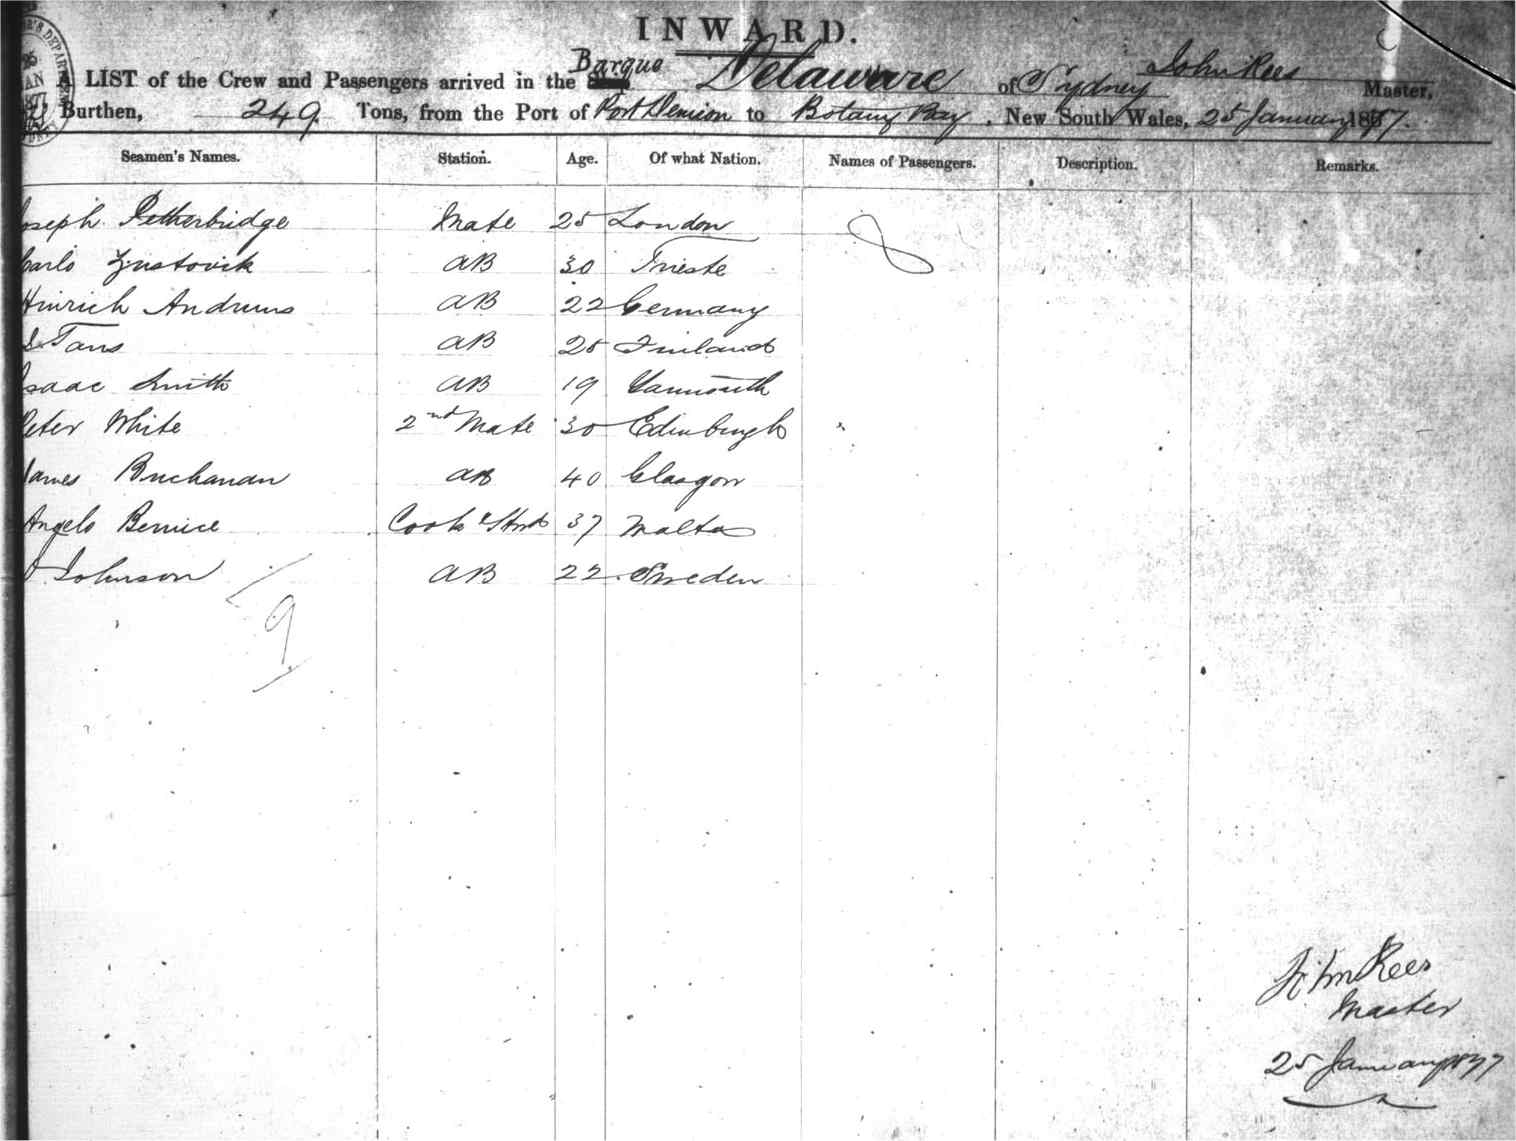 INWARD.
A LIST of the Crew and Passengers arrived in the Barque Delaware of Sydney John Rees Master,
Burthen, 249 Tons, from the Port of Port Denison to Botany Bay, New South Wales, 25 January 1877.
Seamen's Names. Station. Age. Of what Nation. Names of Passengers. Description. Remarks.
Joseph Petherbridge Mate 25 London
Carlo AB 30 Trieste
Hinrich Andrews AB 22 Germany
Tans AB 25 Finland
Isaac Smith AB 19 Yarmouth
Peter White 2nd Mate 30 Edinburgh
James Buchanan AB 40 Glasgow
Angelo Bernice Cook & Stwd 37 Malta
Johnson AB 22 Sweden
9
John Rees
Master
25 January 1877